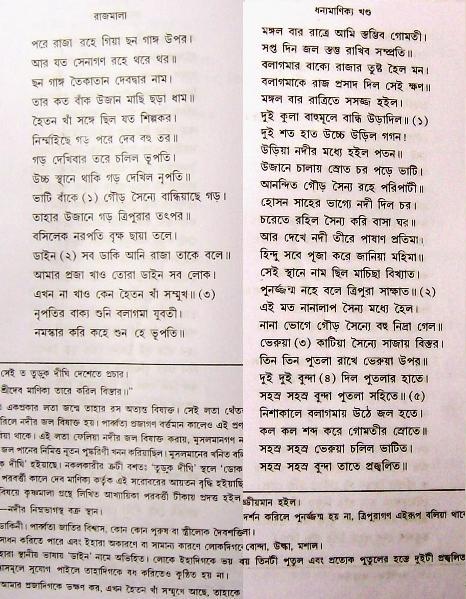 রাজমালা
পরে রাজা রহে গিয়া ছন গাঙ্গ উপর।
আর যত সেনাগণ রহে থরে থর॥
ছন গাঙ্গ তৈকাতান দেবদ্বার নাম।
তার কত বাঁক উজান মাছি ছড়া ধাম॥
হৈতন খাঁ সঙ্গে ছিল যত শিল্পকর।
নির্ম্মাইছে গড় পরে দেব বহু তর॥
গড় দেখিবার তরে চলিল ভূপতি।
উচ্চ স্থানে থাকি গড় দেখিল নৃপতি॥
ভাটি বাঁকে (১) গৌড় সৈন্যে বান্ধিয়াছে গড়।
তাহার উজানে গড় ত্রিপুরার তৎপর॥
বসিলেক নরপতি বৃক্ষ ছায়া তলে।
ডাইন (২) সব ডাকি আনি রাজা তাকে বলে॥
আমার প্রজা খাও তোরা ডাইন সব লোক।
এখন না খাও কেন হৈতন খাঁ সম্মুখ॥ (৩)
নৃপতির বাক্য শুনি বলাগমা যুবতী।
নমস্কার করি কহে শুন হে ভূপতি॥
সেই ত তুড়ুক দীঘি দেশেতে প্রচার।
শ্রীদেব মাণিক্য তারে করিল বিস্তার॥"
একপ্রকার লতা জন্মে তাহার রস অত্যন্ত বিষাক্ত। সেই লতা থেঁত
রিলে নদীর জল বিষাক্ত হয়। পার্ব্বত্য প্রজাগণ বর্ত্তমান কালেও এই প্রণ
য়া থাকে। এই লতা ফেলিয়া নদীর জল বিষাক্ত করায়, মুসলমানগণ ন
জল পানের নিমিত্ত নূতন পুষ্করিণী খনন করিয়াছিল। মুসলমানের খনিত বলি
ক দীঘি' হইয়াছে। নকলকারীর ত্রুটী বশতঃ 'তুড়ুক দীঘি' স্থলে 'ডোক
পরবর্ত্তী কালে দেব মাণিক্য কর্ত্তৃক এই সরোবরের আয়তন বৃদ্ধি হইয়াছি
বিষয়ে কৃষ্ণমালা গ্রন্থে লিখিত আখ্যায়িকা পরবর্ত্তী টীকায় প্রদত্ত হইল
—নদীর নিম্নভাগস্থ বক্র স্থান।
ডাকিনী। পার্ব্বত্য জাতির বিশ্বাস, কোন কোন পুরুষ বা স্ত্রীলোক দৈবশক্তি
সাধন করিতে পারে এবং ইহারা অকারণে বা সামান্য কারণে লোকদিগকে
হারা স্থানীয় ভাষায় 'ডাইন' নামে অভিহিত। লোকে ইহাদিগকে ভয়
সমূলে সুযোগ পাইলে তাহাদিগকে বধ করিতেও কুণ্ঠিত হয় না।
আমার প্রজাদিগকে ভক্ষণ কর, এখন হৈতন খাঁ সম্মুখে আছে, তাহাকে
ধন্যমাণিক্য খণ্ড
মঙ্গল বার রাত্রে আমি স্তম্ভিব গোমতী।
সপ্ত দিন জল স্তম্ভ রাখিব সম্প্রতি॥
বলাগমার বাক্যে রাজার তুষ্ট হৈল মন।
বলাগমাকে রাজ প্রসাদ দিল সেই ক্ষণ॥
মঙ্গল বার রাত্রিতে সসজ্জ হইল।
দুই কুলা বাহুমূলে বান্ধি উড়াদিল॥ (১)
দুই শত হাত উচ্চে উড়িল গগন।
উড়িয়া নদীর মধ্যে হইল পতন॥
উজানে চালায় স্রোত চর পড়ে ভাটি।
আনন্দিত গৌড় সৈন্য রহে পরিপাটী॥
হোসন সাহের ভাগ্যে নদী দিল চর।
চরেতে রহিল সৈন্য করি বাসা ঘর॥
আর দেখে নদী তীরে পাষাণ প্রতিমা।
হিন্দু সবে পূজা করে জানিয়া মহিমা॥
সেই স্থানে নাম ছিল মাচিছা বিখ্যাত।
পুনর্জ্জন্ম নহে বলে ত্রিপুরা সাক্ষাত॥ (২)
এই মত নানালাপ সৈন্য মধ্যে হৈল।
নানা ভোগে গৌড় সৈন্যে বহু নিদ্রা গেল॥
ভেরুয়া (৩) কাটিয়া সৈন্যে সাজায় বিস্তর।
তিন তিন পুতলা রাখে ভেরুয়া উপর॥
দুই দুই বুন্দা (৪) দিল পুতলার হাতে।
সহস্র সহস্র বুন্দা পুতলা সহিতে॥ (৫)
নিশাকালে বলাগমায় উঠে জল হতে।
কল কল শব্দ করে গোমতীর স্রোতে॥
সহস্র সহস্র ভেরুয়া চলিল ভাটিত।
সহস্র সহস্র বুন্দা তাতে প্রজ্বলিত॥
ড্ডীয়মান হইল।
দর্শন করিলে পুনর্জ্জন্ম হয় না, ত্রিপুরাগণ এইরূপ বলিয়া থাকে
বোন্দা, উল্কা, মশাল।
য় তিনটী পুতুল এবং প্রত্যেক পুতুলের হস্তে দুইটী প্রজ্বলিত